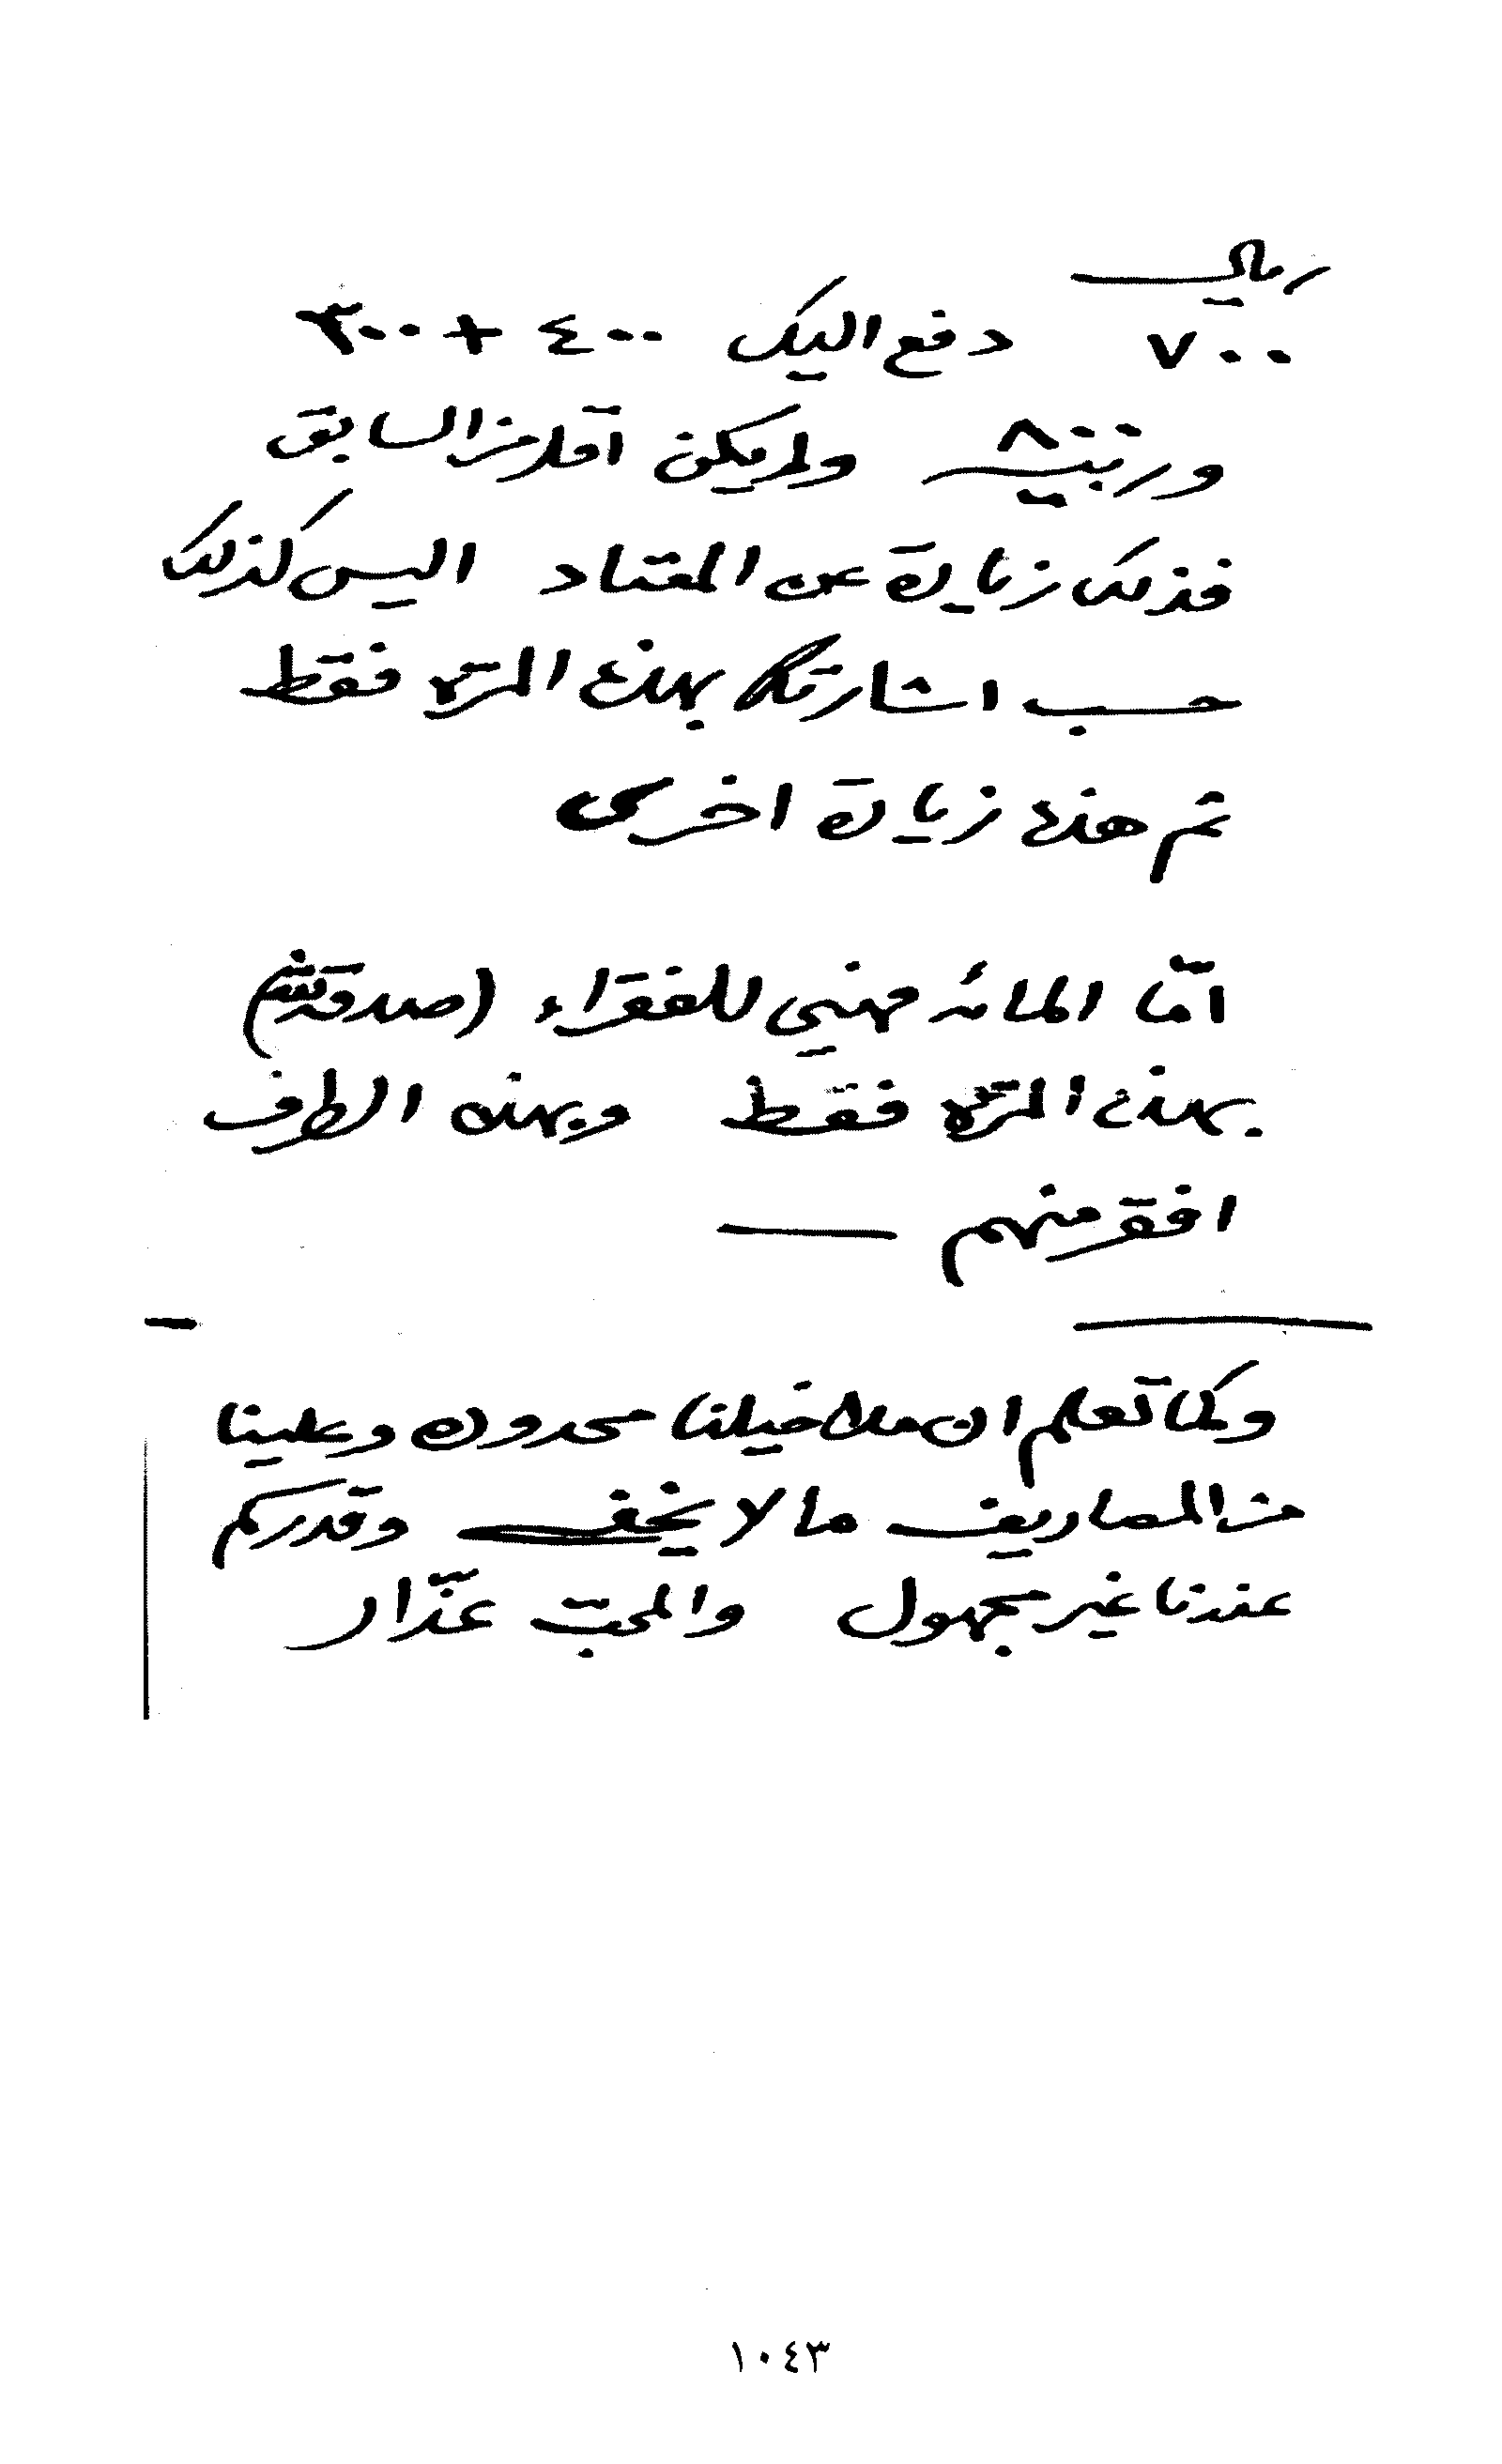 ريالـــ
٧٠٠ دفع اليك ٤٠٠ + ٣٠٠
ولم يكن اقل من السابق
فذلك زيادة عن المعتاد اليس كذلك
حسب اشارتك بهذه المرّة فقط
ثم هذه زيادة اخرى
امّا المائة فهي للفقراء (صدقة)
بهذه المرّة فقط وبهذه الطرف
افقر منهم —
وكما تعلم ان مداخيلنا محدودة وعلينا
من المصاريف ما لا يخفى وقدركم
عندنا غير مجهول والمحبّ عذّار
١٠٤٣